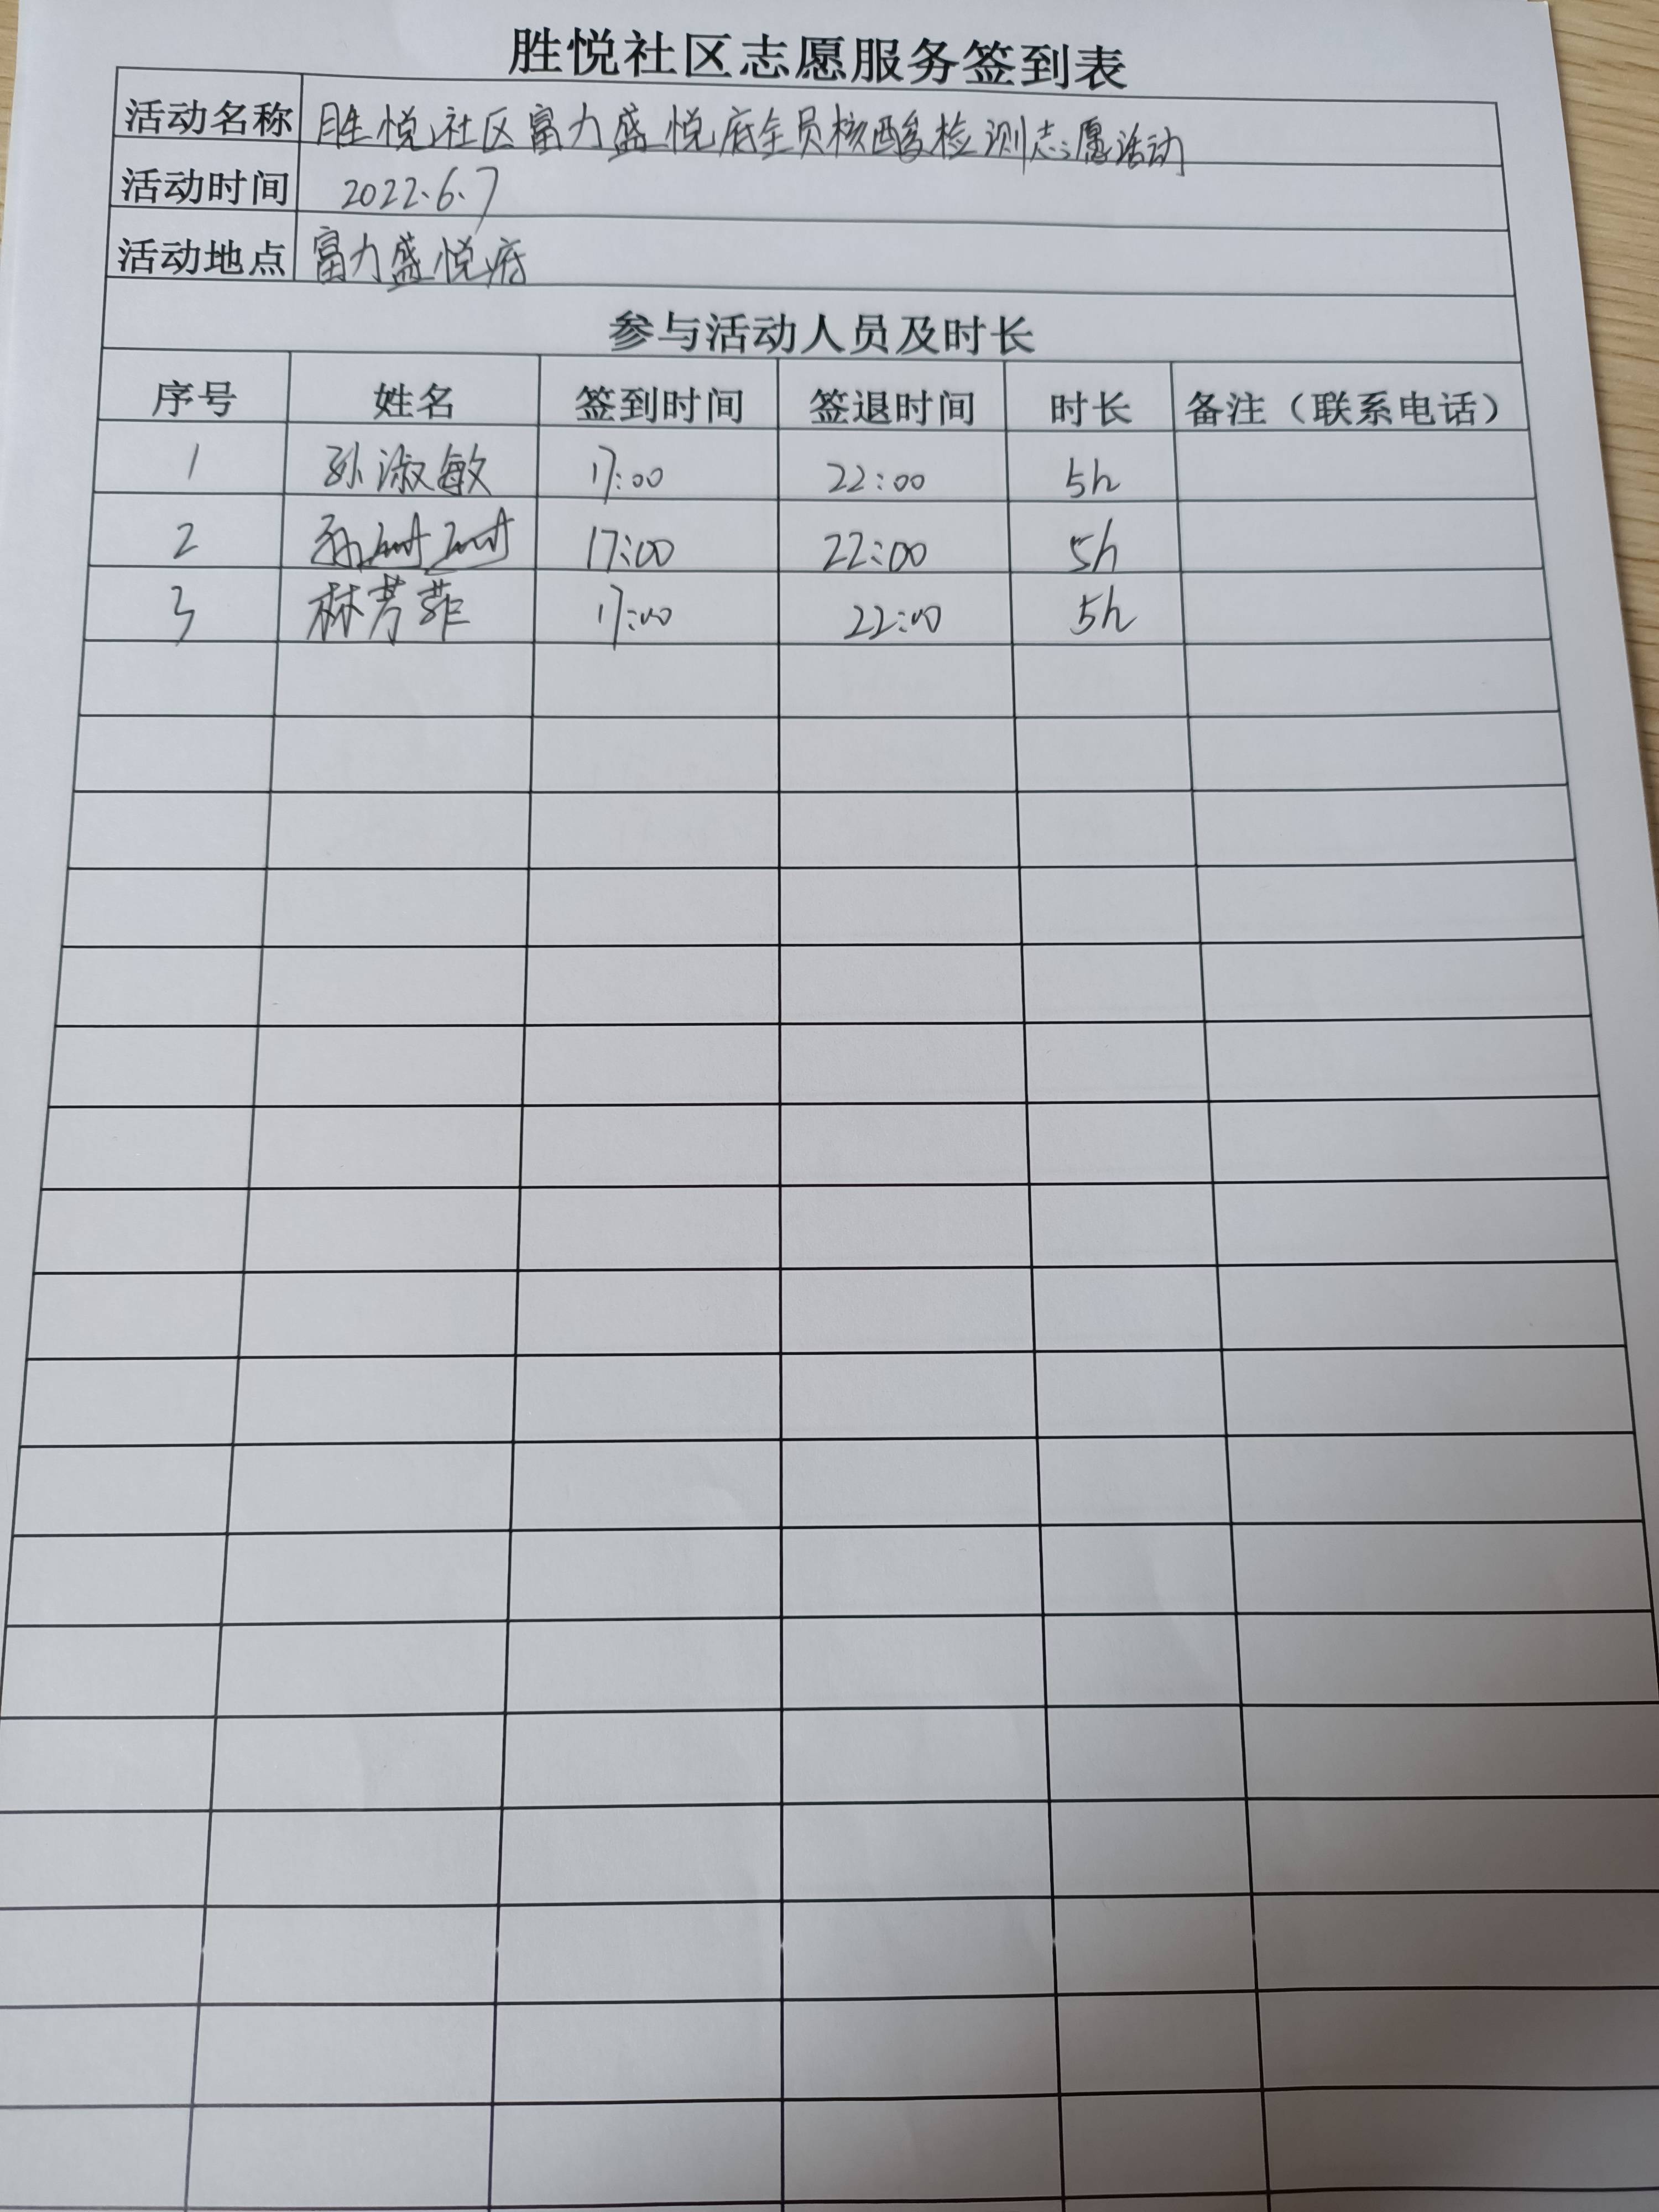 胜悦社区志愿服务签到表
活动名称 胜悦社区富力盛悦府全员核酸检测志愿活动
活动时间 2022.6.7
活动地点 富力盛悦府
参与活动人员及时长
序号 姓名 签到时间 签退时间 时长 备注（联系电话）
1 孙淑敏 17:00 22:00 5h
2 孙 17:00 22:00 5h
3 林芳菲 17:00 22:00 5h